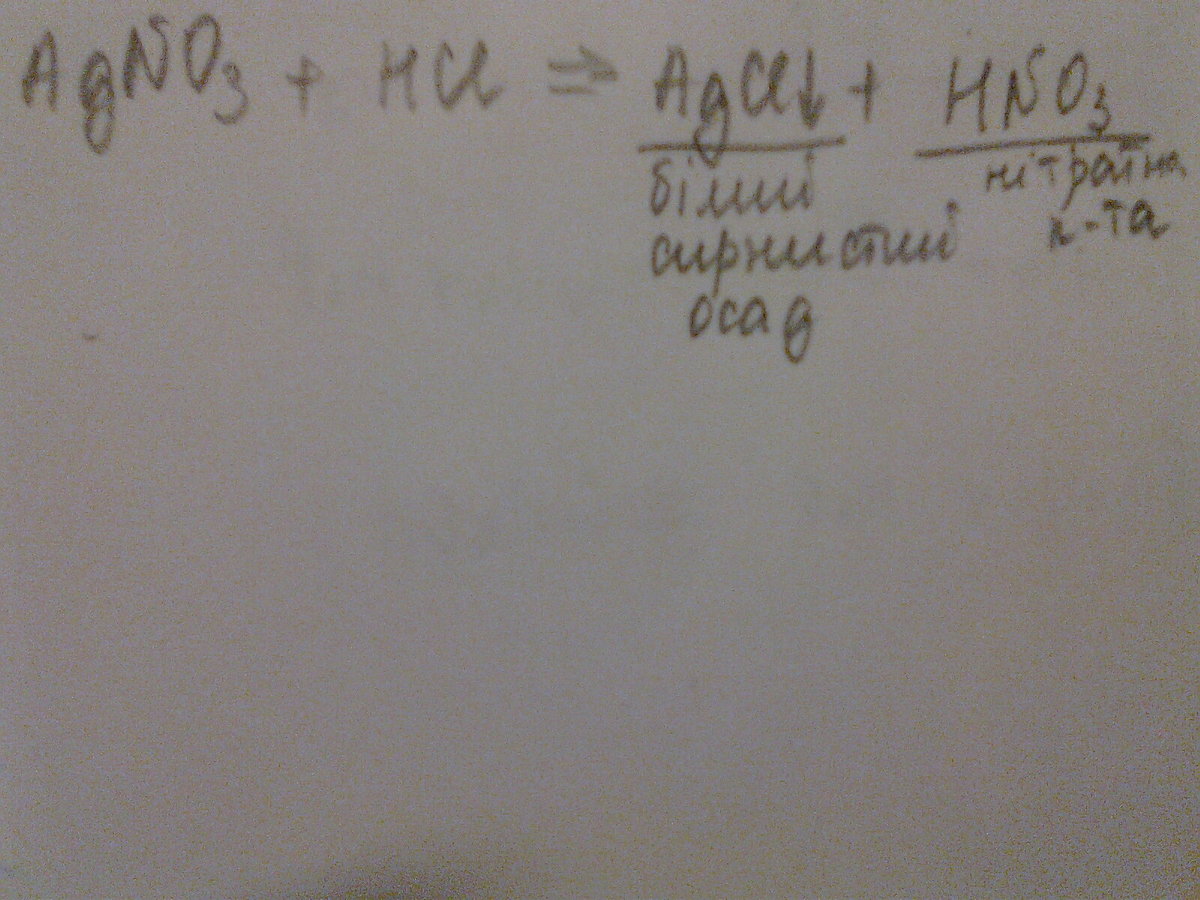 AgNO₃ + HCl ⇒ AgCl↓ + HNO₃
білий
сирнистий
осад
нітратна
к-та